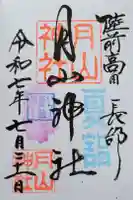 陸前高田 長部
月山神社
令和七年七月三十一日
月山神社
夏詣
月山神社